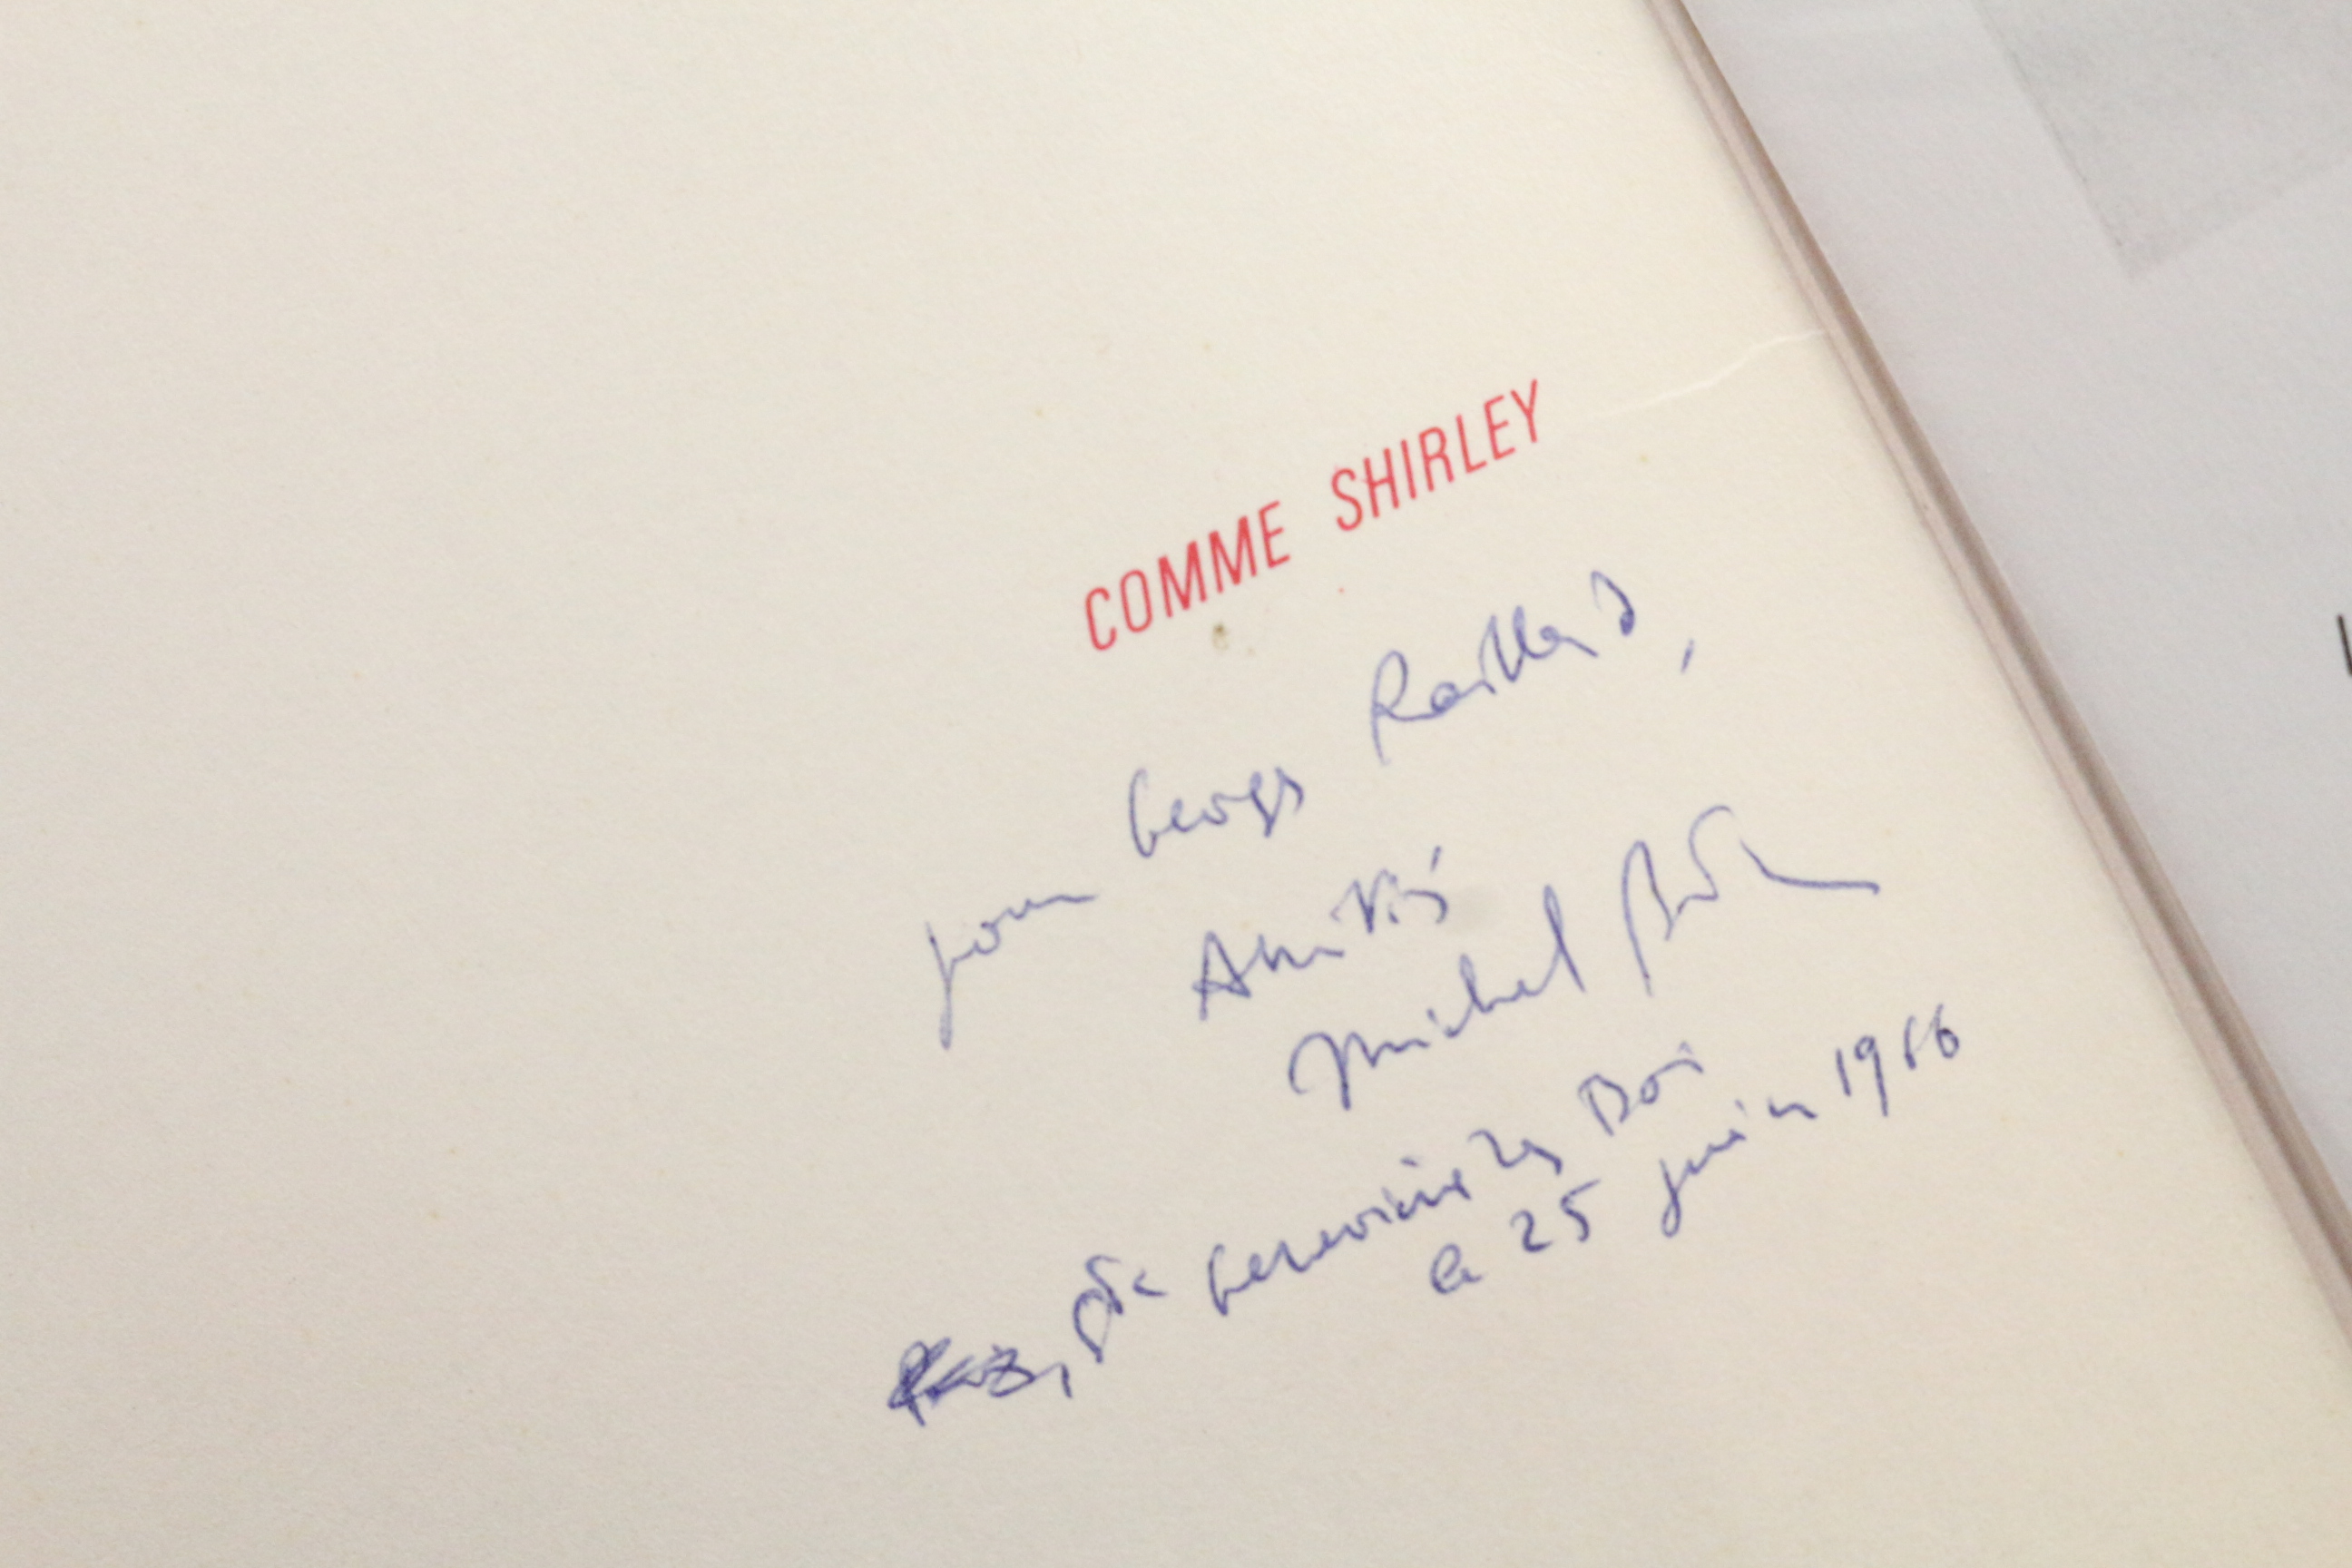 COMME SHIRLEY
pour Georges Raillard,
Amitiés
Michel Butor
, Ste Geneviève des Bois
le 25 juin 1966